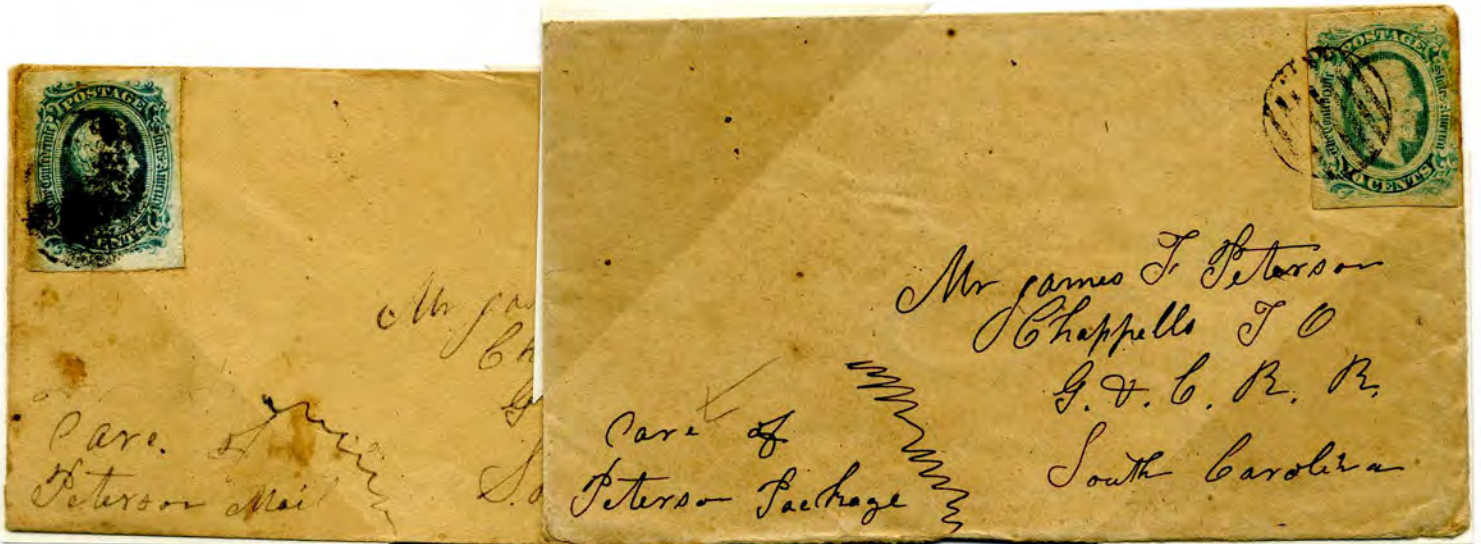 POSTAGE
The Confederate
States of America
CENTS
Mr Jas
Ch
G
So
Care of
Peterson Mail
POSTAGE
The Confederate
States of America
10 CENTS
Mr James F Peterson
Chappells P O
G. & C. R. R.
South Carolina
Care of
Peterson Package